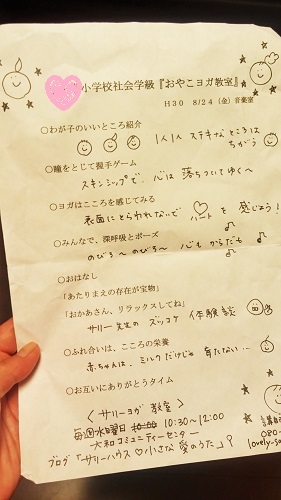 小学校社会学級『おやこヨガ教室』
H30 8/24(金)音楽室
○わが子のいいところ紹介
1人1人 ステキな ところは
ちがう
○瞳をとじて握手ゲーム
スキンシップで、心は 落ちついてゆく〜
○ヨガはこころを感じてみる
表面にとらわれないで ♡ハート を 感じよう!
○みんなで、深呼吸とポーズ
のびる〜 のびる〜 心も からだも♪
○おはなし
「あたりまえの存在が宝物」
「おかあさん、リラックスしてね」
サリー先生の ズッコケ 体験談
○ふれ合いは、こころの栄養
赤ちゃんは、ミルクだけじゃ 育たない…
○お互いにありがとうタイム
〈サリーヨガ 教室〉
毎週水曜日 10:30〜12:00
大和コミュニティーセンター
ブログ「サリーハウス♡小さな愛のうた」
講師
080-
lovely-sa